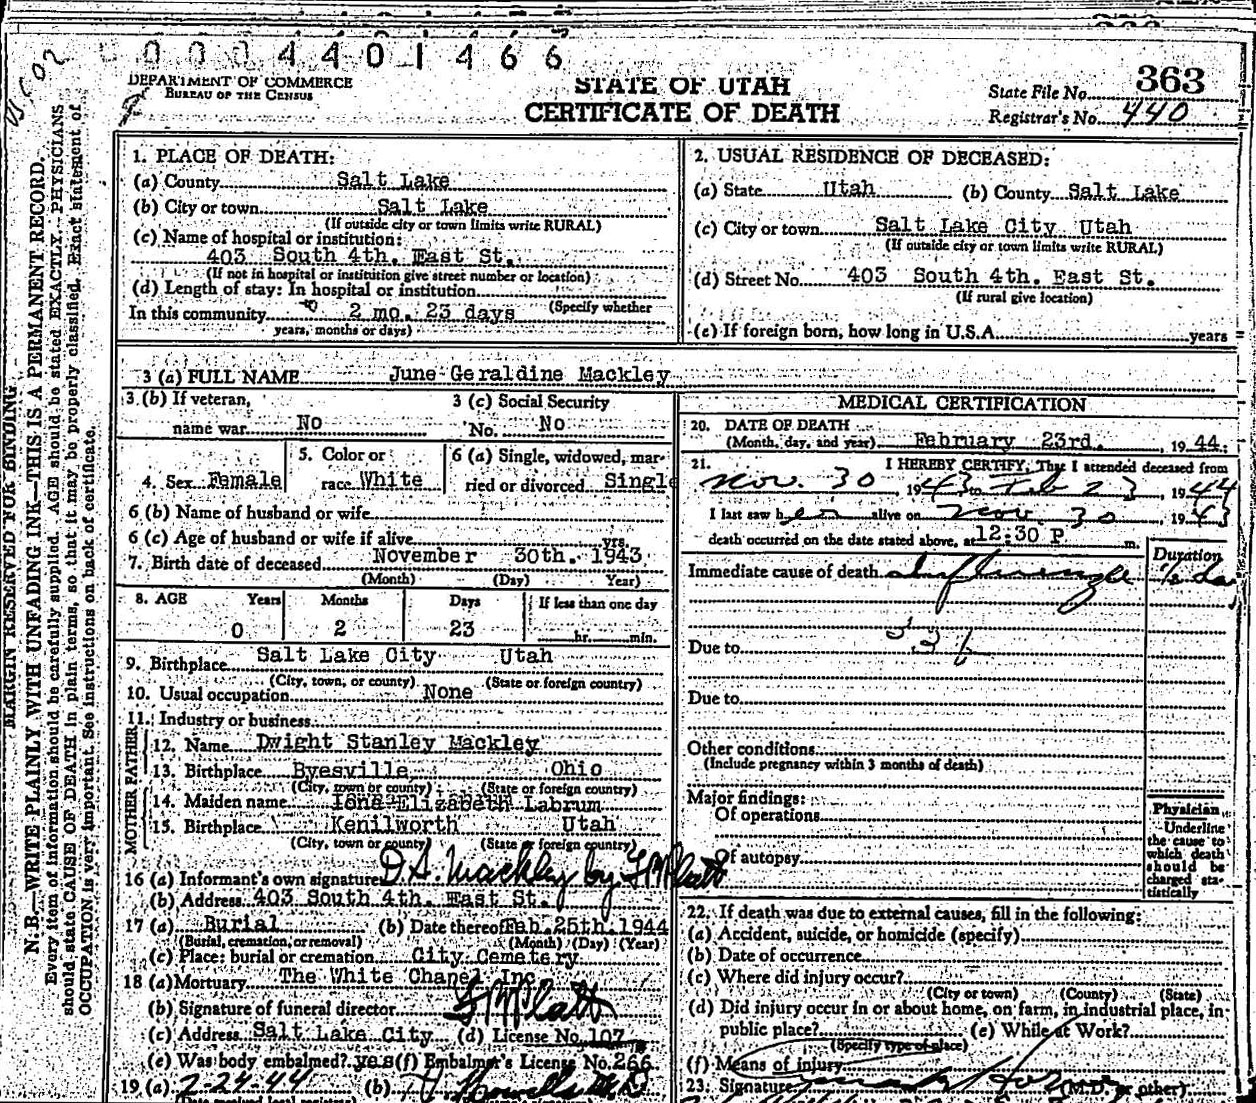 0004401466
DEPARTMENT OF COMMERCE
BUREAU OF THE CENSUS
STATE OF UTAH
CERTIFICATE OF DEATH
State File No. 363
Registrar's No. 440
MARGIN RESERVED FOR BINDING
N.B.—WRITE PLAINLY WITH UNFADING INK—THIS IS A PERMANENT RECORD.
Every item of information should be carefully supplied. AGE should be stated EXACTLY. PHYSICIANS
should state CAUSE OF DEATH in plain terms, so that it may be properly classified. Exact statement of
OCCUPATION is very important. See instructions on back of certificate.
1. PLACE OF DEATH:
(a) County Salt Lake
(b) City or town Salt Lake
(If outside city or town limits write RURAL)
(c) Name of hospital or institution:
403 South 4th. East St.
(If not in hospital or institution give street number or location)
(d) Length of stay: In hospital or institution
In this community 2 mo. 23 days (Specify whether
years, months or days)
2. USUAL RESIDENCE OF DECEASED:
(a) State Utah (b) County Salt Lake
(c) City or town Salt Lake City Utah
(If outside city or town limits write RURAL)
(d) Street No. 403 South 4th. East St.
(If rural give location)
(e) If foreign born, how long in U.S.A. years
3 (a) FULL NAME June Geraldine Mackley
3 (b) If veteran, 3 (c) Social Security
name war No No. No
4. Sex Female 5. Color or race White 6 (a) Single, widowed, married or divorced Single
6 (b) Name of husband or wife
6 (c) Age of husband or wife if alive yrs.
7. Birth date of deceased November 30th. 1943
(Month) (Day) Year)
8. AGE Years Months Days If less than one day
0 2 23 hr. min.
9. Birthplace Salt Lake City Utah
(City, town, or county) (State or foreign country)
10. Usual occupation None
11. Industry or business
FATHER
12. Name Dwight Stanley Mackley
13. Birthplace Byesville Ohio
(City, town or county) (State or foreign country)
MOTHER
14. Maiden name Iona Elizabeth Labrum
15. Birthplace Kenilworth Utah
(City, town or county) (State or foreign country)
16 (a) Informant's own signature D S. Mackley by
(b) Address 403 South 4th. East St.
17 (a) Burial (b) Date thereof Feb. 25th. 1944
(Burial, cremation, or removal) (Month) (Day) (Year)
(c) Place: burial or cremation City Cemetery
18 (a) Mortuary The White Chapel Inc
(b) Signature of funeral director
(c) Address Salt Lake City (d) License No. 107
(e) Was body embalmed? yes (f) Embalmer's License No. 266
19 (a) 2-24-44 (b)
MEDICAL CERTIFICATION
20. DATE OF DEATH
(Month, day, and year) February 23rd. , 1944
21. I HEREBY CERTIFY, That I attended deceased from
Nov. 30 1943 to Feb 23, 1944
I last saw her alive on Nov. 30, 1943
death occurred on the date stated above, at 12:30 P m.
Duration
Immediate cause of death Influenza ½ da
Due to
Due to
Other conditions
(Include pregnancy within 3 months of death)
Major findings:
Of operations
Of autopsy
Physician
Underline
the cause to
which death
should be
charged sta-
tistically
22. If death was due to external causes, fill in the following:
(a) Accident, suicide, or homicide (specify)
(b) Date of occurrence
(c) Where did injury occur?
(City or town) (County) (State)
(d) Did injury occur in or about home, on farm, in industrial place, in
public place? (e) While at Work?
(Specify type of place)
(f) Means of injury
23. Signature (M.D. or other)